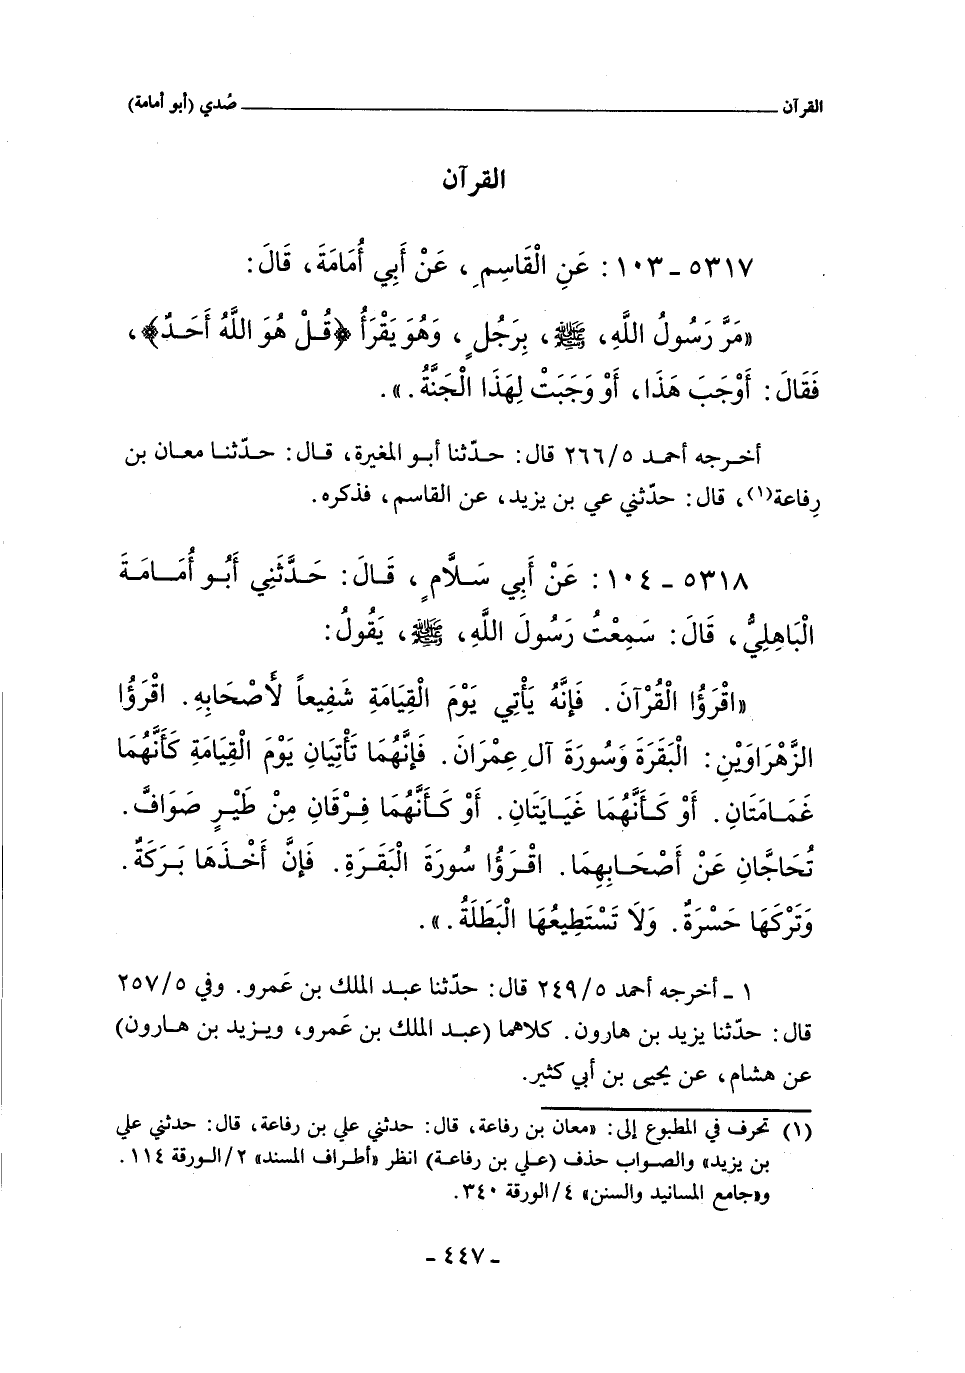 القرآن ـــــــــــــــ صُدي (أبو أمامة)
القرآن
٥٣١٧ - ١٠٣ : عَنِ الْقَاسِمِ ، عَنْ أَبِي أُمَامَةَ ، قَالَ :
«مَرَّ رَسُولُ اللَّهِ ، ﷺ ، بِرَجُلٍ ، وَهُوَ يَقْرَأُ ﴿قُلْ هُوَ اللَّهُ أَحَدٌ﴾ ،
فَقَالَ : أَوْجَبَ هَذَا ، أَوْ وَجَبَتْ لِهَذَا الْجَنَّةُ . » .
أخرجه أحمد ٢٦٦/٥ قال : حدّثنا أبو المغيرة ، قال : حدّثنا معان بن
رِفاعة(١) ، قال : حدّثني عي بن يزيد ، عن القاسم ، فذكره .
٥٣١٨ - ١٠٤ : عَنْ أَبِي سَلَّامٍ ، قَالَ : حَدَّثَنِي أَبُو أُمَامَةَ
الْبَاهِلِيُّ ، قَالَ : سَمِعْتُ رَسُولَ اللَّهِ ، ﷺ ، يَقُولُ :
«اقْرَؤُا الْقُرْآنَ . فَإِنَّهُ يَأْتِي يَوْمَ الْقِيَامَةِ شَفِيعاً لأَصْحَابِهِ . اقْرَؤُا
الزَّهْرَاوَيْنِ : الْبَقَرَةَ وَسُورَةَ آلِ عِمْرَانَ . فَإِنَّهُمَا تَأْتِيَانِ يَوْمَ الْقِيَامَةِ كَأَنَّهُمَا
غَمَامَتَانِ . أَوْ كَأَنَّهُمَا غَيَايَتَانِ . أَوْ كَأَنَّهُمَا فِرْقَانِ مِنْ طَيْرٍ صَوَافَّ .
تُحَاجَّانِ عَنْ أَصْحَابِهِمَا . اقْرَؤُا سُورَةَ الْبَقَرَةِ . فَإِنَّ أَخْذَهَا بَرَكَةٌ .
وَتَرْكَهَا حَسْرَةٌ . وَلَا تَسْتَطِيعُهَا الْبَطَلَةُ . » .
١ - أخرجه أحمد ٢٤٩/٥ قال : حدّثنا عبد الملك بن عَمرو . وفي ٢٥٧/٥
قال : حدّثنا يزيد بن هارون . كلاهما (عبد الملك بن عَمرو ، ويزيد بن هارون)
عن هشام ، عن يحيى بن أبي كثير .
(١) تحرف في المطبوع إلى : «معان بن رفاعة ، قال : حدثني علي بن رفاعة ، قال : حدثني علي
بن يزيد» والصواب حذف (علي بن رفاعة) انظر «أطراف المسند» ٢/الورقة ١١٤ .
و«جامع المسانيد والسنن» ٤/الورقة ٣٤٠ .
- ٤٤٧ -